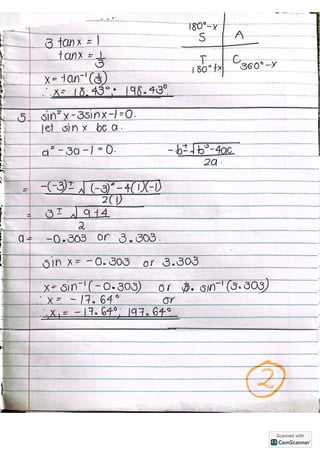 180°-x
S A
3 tan x = 1
tan x = 1/3
T C
180°+x 360°-x
x = tan⁻¹(1/3)
∴ x = 18.43°; 198.43°
5. sin²x-3sinx-1=0.
let sin x be a.
a² - 3a - 1 = 0. -b±√b²-4ac
2a.
= -(-3)± √(-3)²-4(1)(-1)
2(1)
= 3 ± √9+4
2
a = -0.303 or 3.303.
sin x = -0.303 or 3.303
x = sin⁻¹(-0.303) or sin⁻¹(3.303)
∴ x = -17.64° or
∴ x₁ = -17.64°; 197.64°
2
Scanned with
CamScanner